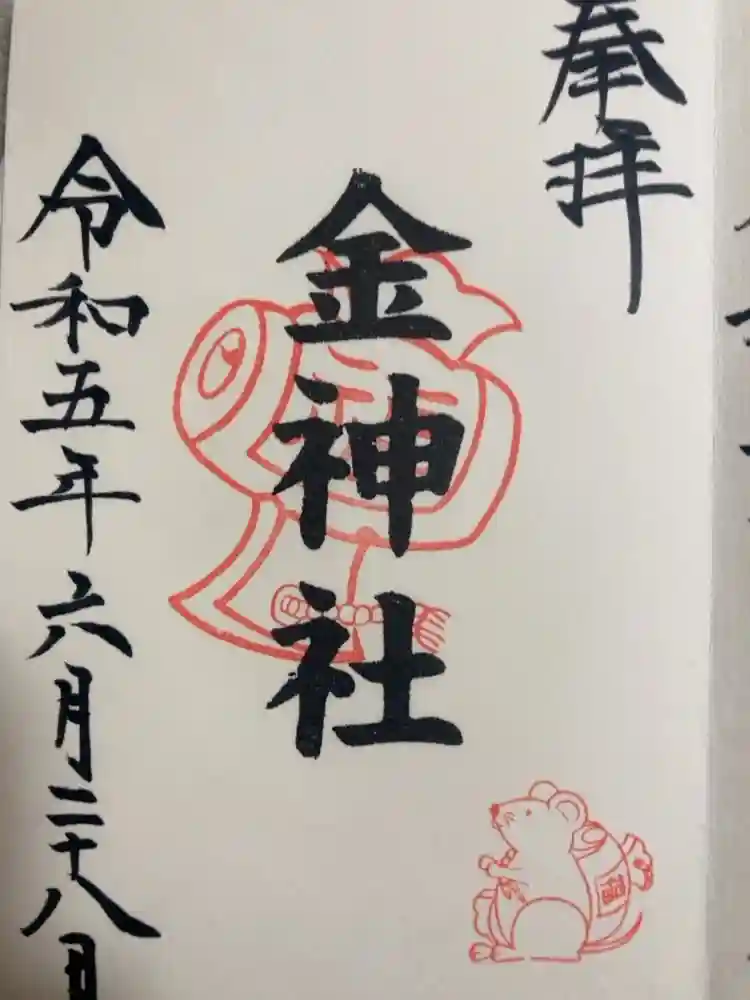 奉拝
金神社
令和五年六月二十八日
福